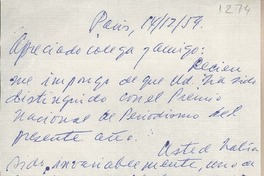 1274
París, 14/12/59.
Apreciado colega y amigo:
Recien
me impongo de que Ud. ha sido
distinguido con el Premio
Nacional de Periodismo del
presente año.
Usted había
sido, invariablemente, uno de